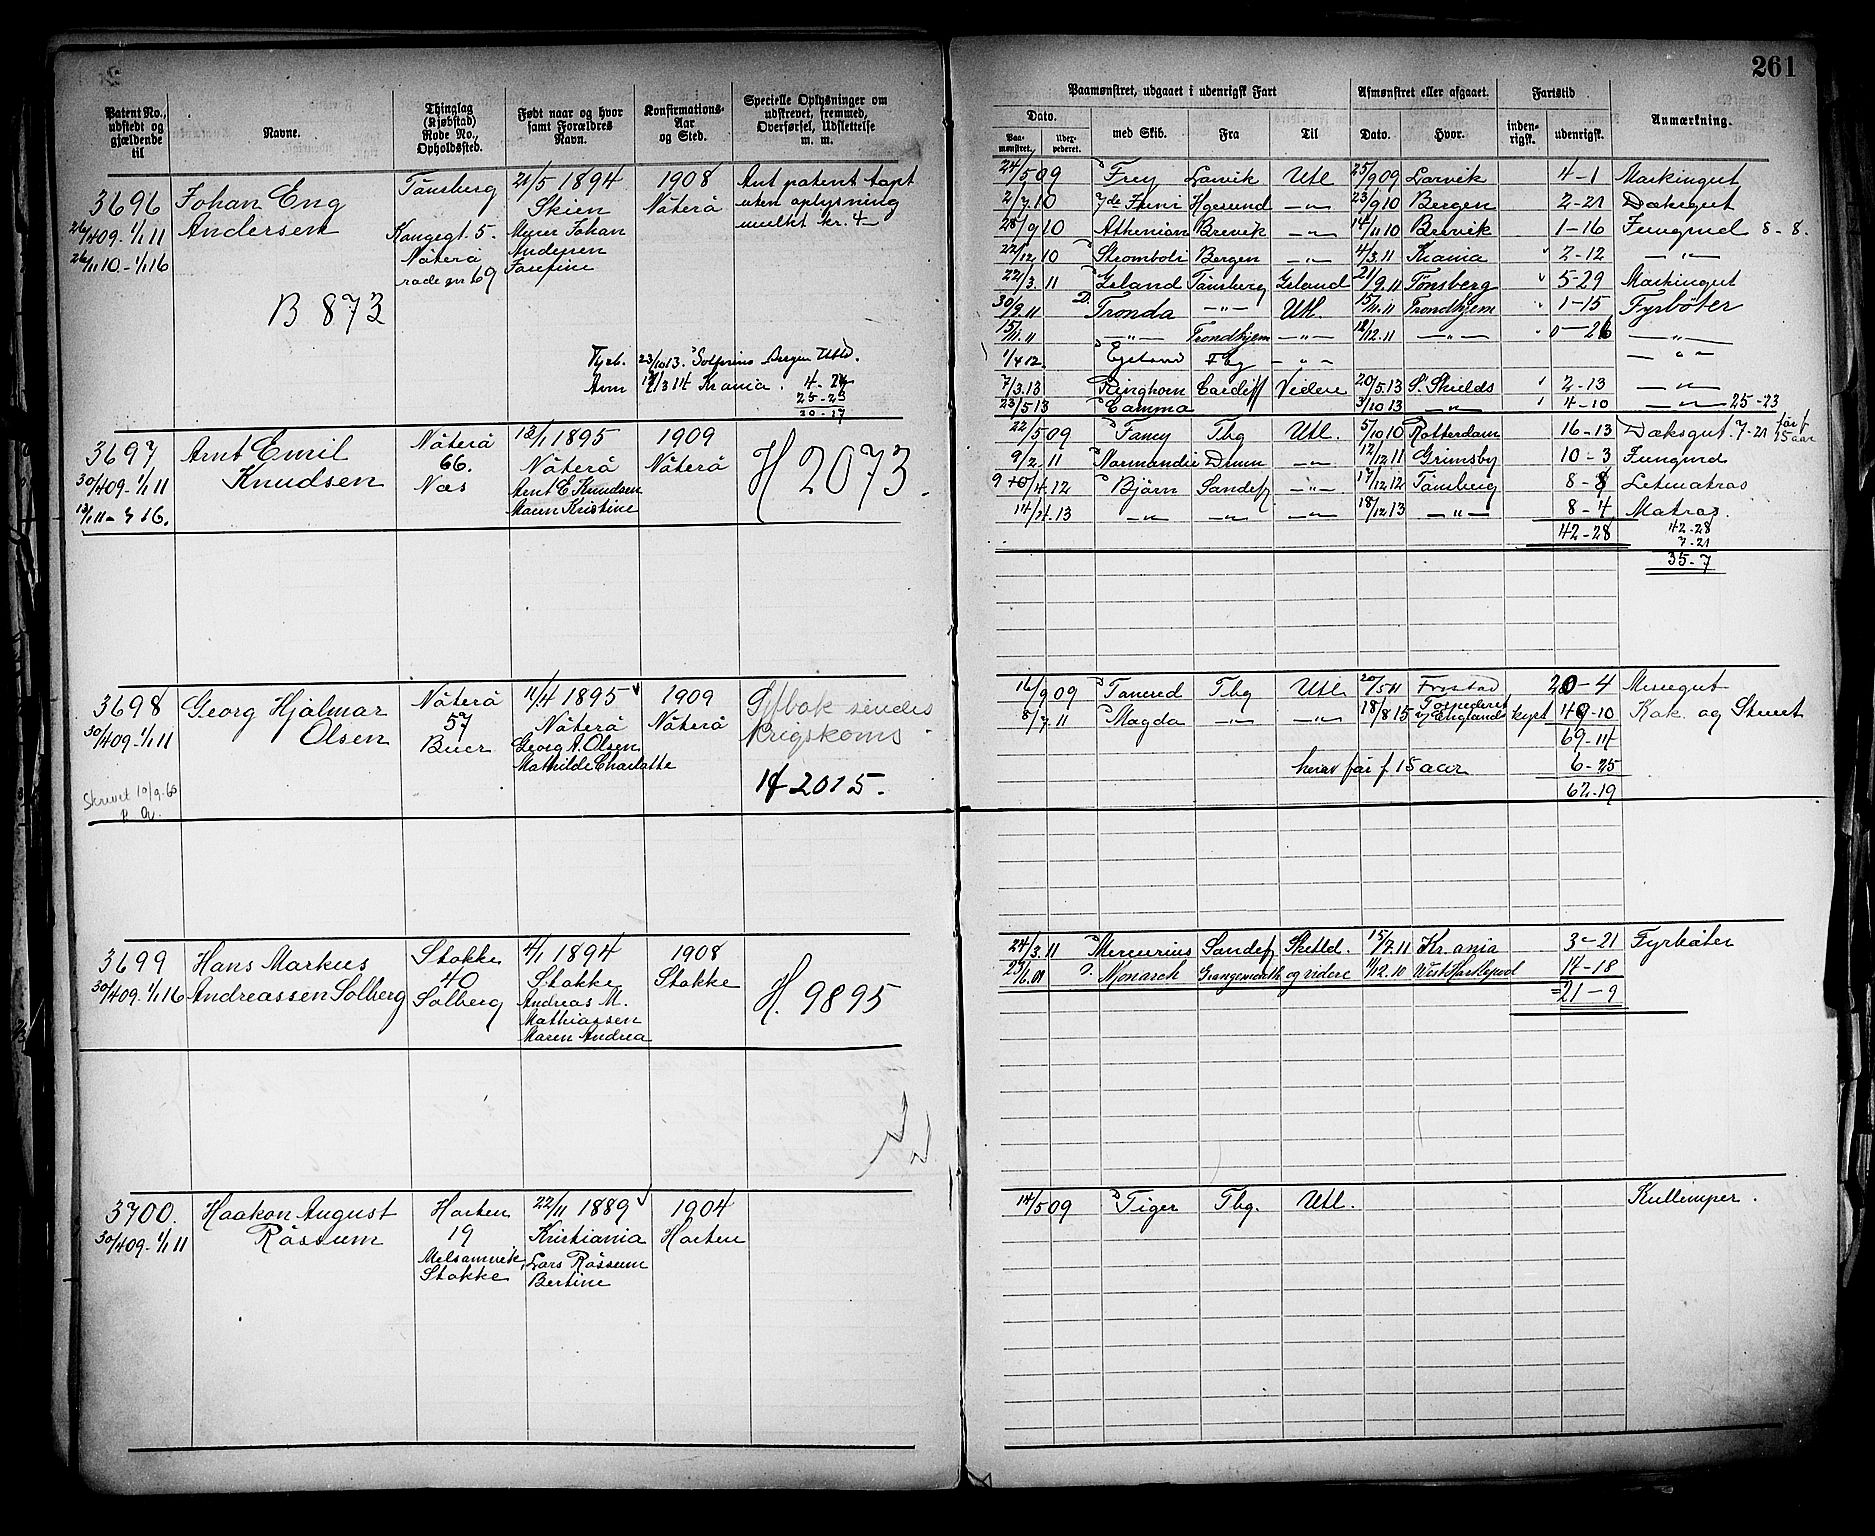 261
Patent No., udstedt og gjældende til
Navne.
Thinglag (Kjøbstad) Rode No., Opholdssted.
Født naar og hvor samt Forældres Navn.
Konfirmations-Aar og Sted.
Specielle Oplysninger om udstrevet, fremmed, Overførsel, Udslettelse m. m.
Paamønstret, udgaaet i udenrigsk Fart
Afmønstret eller afgaaet.
Fartstid
Anmærkning.
Dato.
Paamønstret.
med Skib.
Fra
Til
Dato.
Hvor.
indenrigsk.
udenrigsk.
3696
26/4 09-1/1 11
26/11 10-1/1 16
Johan Eng
Andersen
B 873
Tønsberg
Kongegt. 5.
Nøterø
rode no 69
21/5 1894
Skien
Murer Johan
Andersen
Josefine
1908
Nøterø
Ant patent tapt
uten oplysning
mulkt kr. 4
Fyrb. 23/10 13. Solferino Bergen Utld.
Avm 17/3 14 Krania. 4-24
25-23
30-17
24/5 09 Frey Larvik Utl 25/9 09 Larvik 4-1 Maskingut
2/7 10 Hgesund -"- 23/9 10 Bergen 2-21 Dæksgut
28/9 10 Athenian Brevik -"- 14/11 10 Brevik 1-16 Jungmd 8-8.
22/12 10 Stromboli Bergen -"- 4/3 11 Krania 2-12 -"-
22/3 11 Island Tønsberg Island 21/9 11 Tønsberg 5-29 Maskingut
30/9 11 Tronda -"- Utl. 15/11 11 Trondhjem 1-15 Fyrbøter
15/11 11 -"- Trondhjem -"- 12/12 11 -"- 0-26 -"-
1/4 12 Tbg -"- -"-
7/3 13 Ringhorn Cardiff Videre 20/5 13 S. Shields 2-13 -"-
23/5 13 Gamma 3/10 13 -"- 4-10 -"- 25-23
3697
30/4 09-1/1 11
Arnt Emil
Knudsen
Nøterø
66.
Næs
13/1 1895
Nøterø
Arnt E Knudsen
Maren Kristine
1909
Nøterø
H 2073.
22/5 09 Fancy Tbg Utl. 5/10 10 Rotterdam 16-13 Dæksgut. 7-21 før f 15 aar
9/2 11 Normandie Drmn -"- 12/12 11 Grimsby 10-3 Jungmd
Bjørn Sandefj -"- 17/12 12 Tønsberg 8-8 Letmatros
14/4 13 -"- -"- -"- 18/12 13 -"- 8-4 Matros.
42-28 42-28
7-21
35-7
3698
30/4 09-1/1 11
Skrevet 10/9-60
Georg Hjalmar
Olsen
Nøterø
57
Buer
11/4 1895
Nøterø
Georg A. Olsen
Mathilde Charlotte
1909
Nøterø
Sjfbok sendes
Krigskoms
H 2015.
16/9 09 Tancred Tbg Utl 20/5 11 Frstad 20-4 Messegut
8/7 11 Magda -"- -"- 18/8 15 Torpederet v/ Englands kyst 49-10 Kok og Stuert
69-14
herav før f 15 aar 6-25
62-19
3699
30/4 09-1/1 16
Hans Markus
Andreassen Solberg
Stokke
40
Solberg
4/1 1894
Stokke
Andreas M.
Mathiassen
Maren Andrea
1908
Stokke
H. 9895
24/3 11 Mercurius Sandefj Shetld. 15/7 11 Kr.ania 3-21 Fyrbøter
Monarch Grangemouth og videre 11/12 10 West Hartlepool 17-18
=21-9
3700.
30/4 09-1/1 11
Haakon August
Røssum
Horten
19
Melsomvik,
Stokke
22/11 1889
Kristiania
Lars Røssum
Bertine
1904
Horten
14/5 09 Tiger Tbg. Utl. Kullemper.